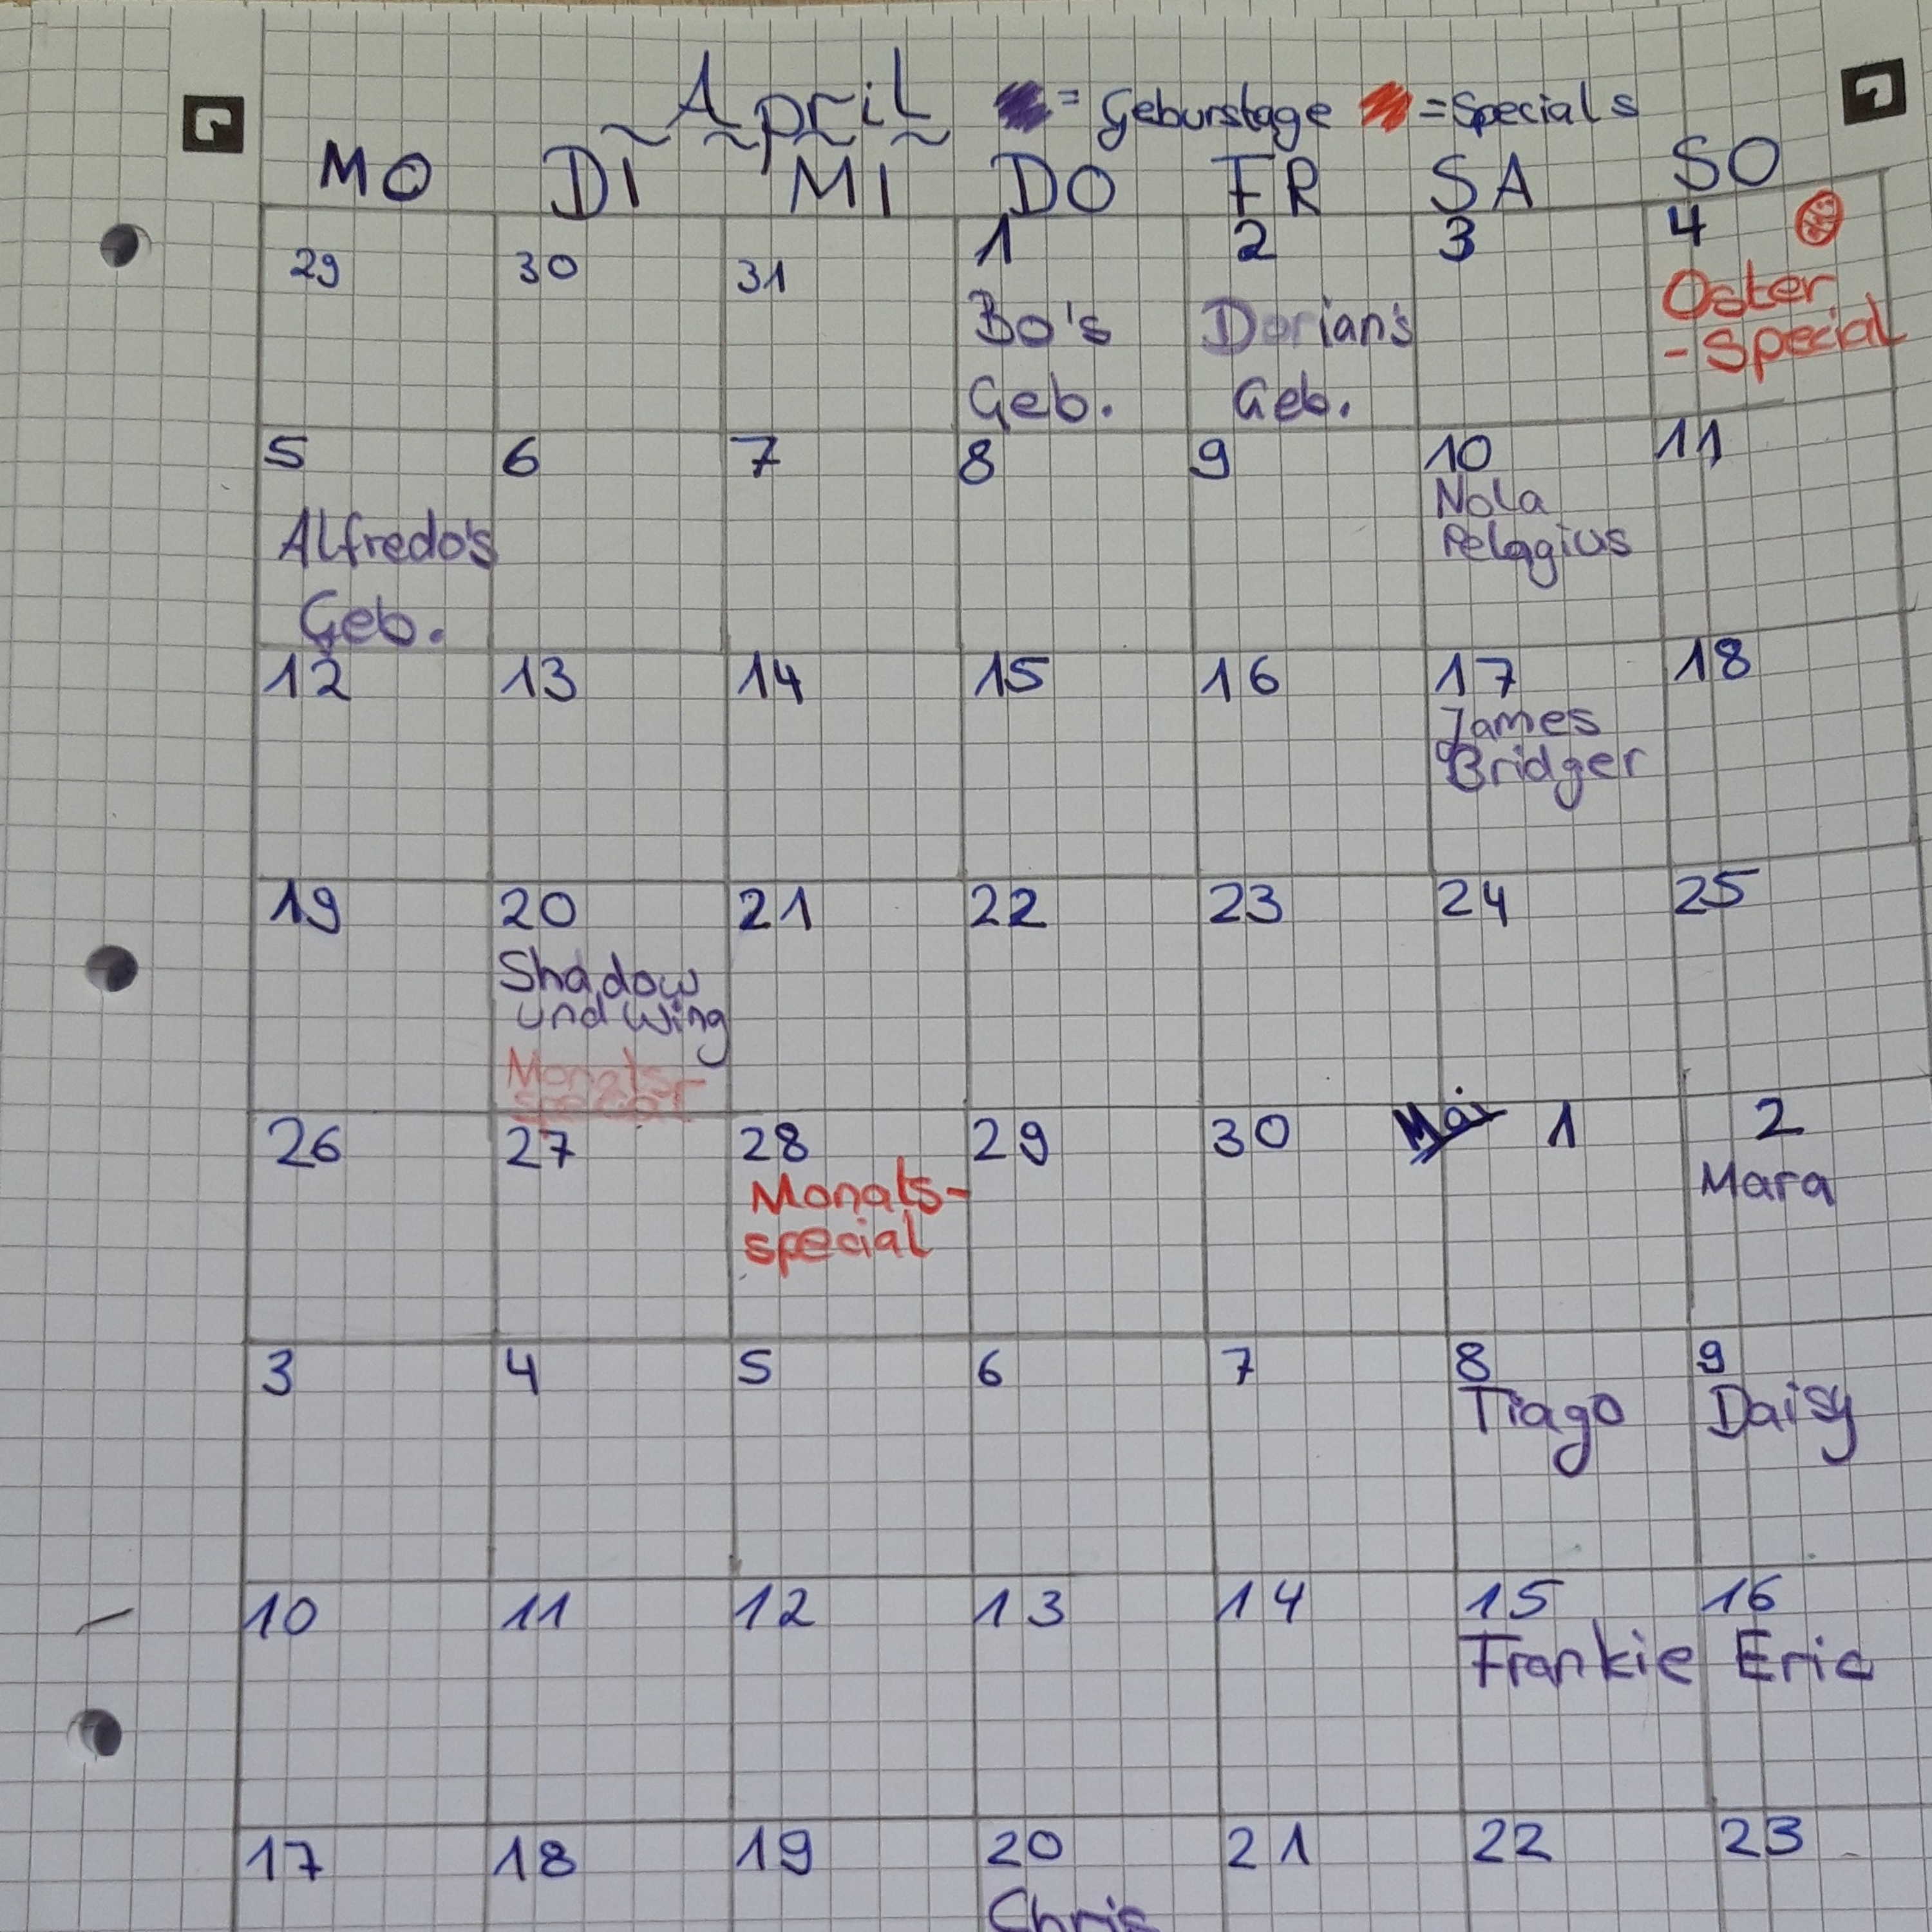 April = Geburstage = Specials
MO DI MI DO FR SA SO
29 30 31 1 2 3 4
Bo's Dorian's Oster
Geb. Geb. -Special
5 6 7 8 9 10 11
Alfredo's Nola
Geb. Pelagius
12 13 14 15 16 17 18
James
Bridger
19 20 21 22 23 24 25
Shadow
und Wing
Monats-
special
26 27 28 29 30 1 2
Monats- Mara
special
3 4 5 6 7 8 9
Tiago Daisy
10 11 12 13 14 15 16
Frankie Eric
17 18 19 20 21 22 23
Chris